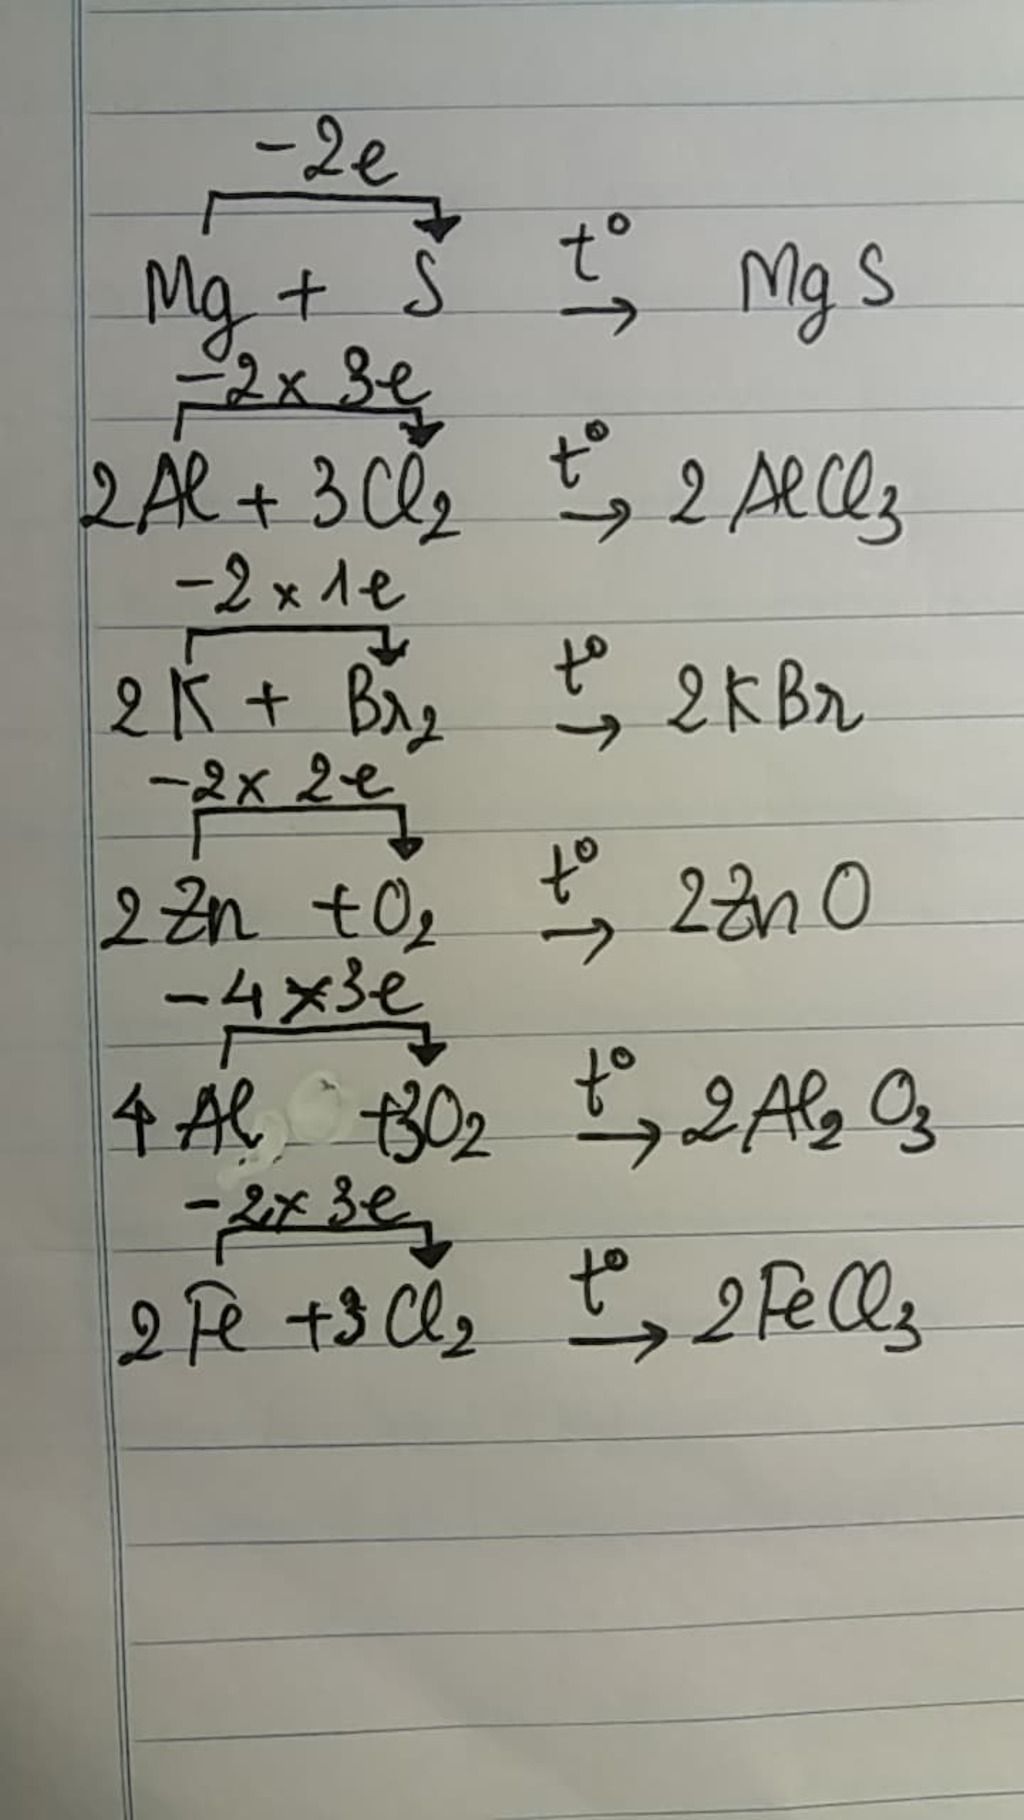 -2e
Mg + S t° → MgS
-2 x 3e
2Al + 3Cl₂ t° → 2AlCl₃
-2 x 1e
2K + Br₂ t° → 2KBr
-2 x 2e
2Zn + O₂ t° → 2ZnO
-4 x 3e
4Al + 3O₂ t° → 2Al₂O₃
-2 x 3e
2Fe + 3Cl₂ t° → 2FeCl₃